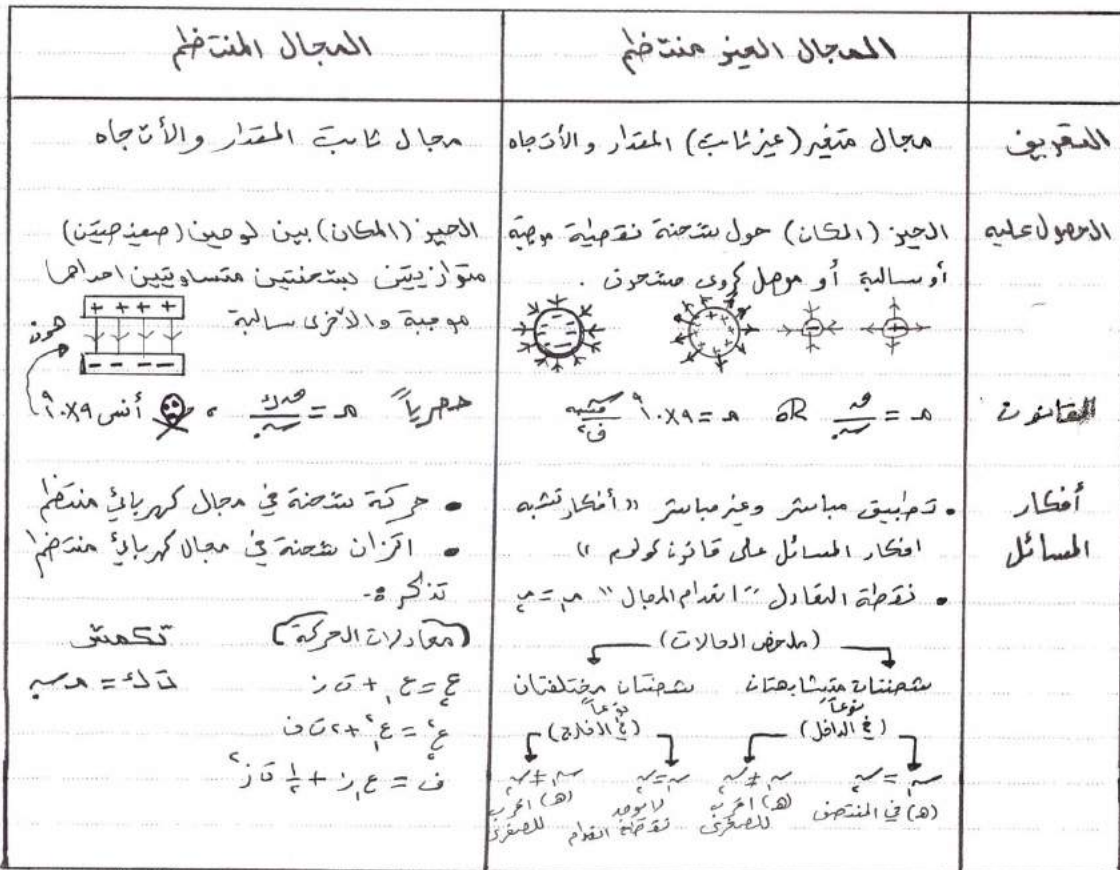 المجال الغير منتظم
المجال المنتظم
التعريف
مجال متغير (غير ثابت) المقدار والأتجاه
مجال ثابت المقدار والأتجاه
الحصول عليه
الحيز (المكان) حول شحنة نقطية موجبة
أو سالبة أو موصل كروي مشحون .
الحيز (المكان) بين لوحين (صفيحتين)
متوازيتين بشحنتين متساويتين احداهما
موجبة والأخرى سالبة
هون
القانون
مـ = قـ / سـ OR مـ = ٩×١٠^٩ سـ / ف٢
حصرياً مـ = قـ ك / سـ ، أنس ٩×١٠^٩
أفكار
المسائل
• تطبيق مباشر وغير مباشر "أفكار تشبه
افكار المسائل على قانون كولوم"
• نقطة التعادل "انعدام المجال" مـ١ = مـ٢
(ملخص الحالات)
شحنتان متشابهتان
نوعاً
(في الداخل)
شحنتان مختلفتان
نوعاً
(في الخارج)
سـ١ = سـ٢
(هـ) في المنتصف
سـ١ ≠ سـ٢
(هـ) اقرب
للصغرى
سـ١ = سـ٢
لا توجد
نقطة انعدام
سـ١ ≠ سـ٢
(هـ) اقرب
للصغرى
• حركة شحنة في مجال كهربائي منتظم
• اتزان شحنة في مجال كهربائي منتظم
تذكر :-
(معادلات الحركة)
ع٢ = ع١ + ت ز
ع٢٢ = ع١٢ + ٢ ت ف
ف = ع١ ز + ١/٢ ت ز٢
ت ك = مـ سـ